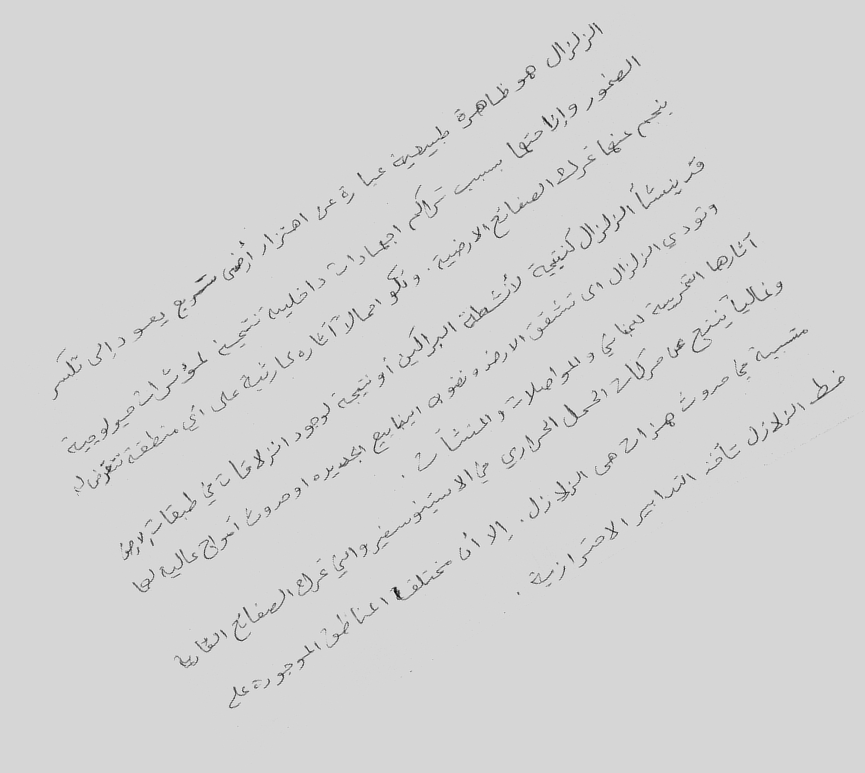 الزلزال هو ظاهرة طبيعية عبارة عن اهتزاز أرضي سريع يعود إلى تكسر
الصخور وإزاحتها بسبب تراكم اجهادات داخلية نتيجة لمؤثرات جيولوجية
ينجم عنها تحرك الصفائح الارضية. وتكو اجمالا آثاره كارثية على أي منطقة تتعرض له
قد ينشأ الزلزال كنتيجة لأنشطة البراكين أو نتيجة لوجود انزلاقات في طبقات الارض
وتودي الزلزال الى تشقق الارض ونضوب الينابيع الجديده او حدوث أمواج عاليه لها
آثارها التخريبية للمباني و المواصلات و المنشآت .
وغالباً ينتج عن حركات الحمل الحراري في الاستينوسفير والتي تحرك الصفائح القارية
متسببة في حدوث هزات هي الزلازل. إلا أن مختلف المناطق الموجودة على
خط الزلازل تأخذ التدابير الاحترازية .